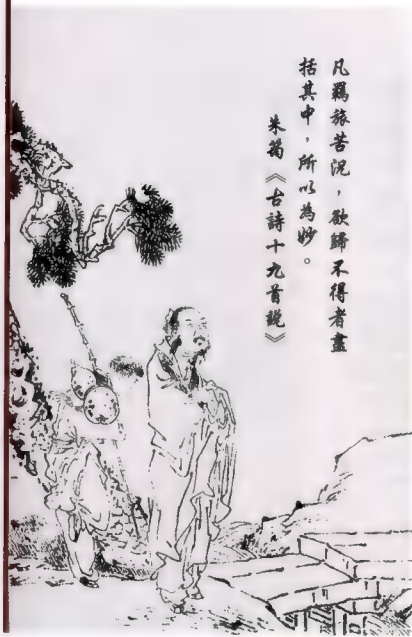 凡羈旅苦況，欲歸不得者盡
括其中，所以為妙。
朱筠《古詩十九首説》